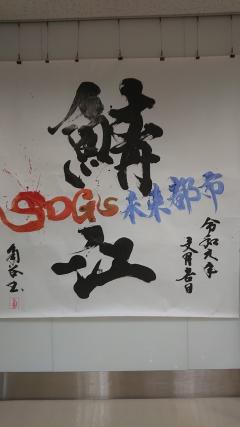 鯖江
SDGs未来都市
令和元年
文月吉日